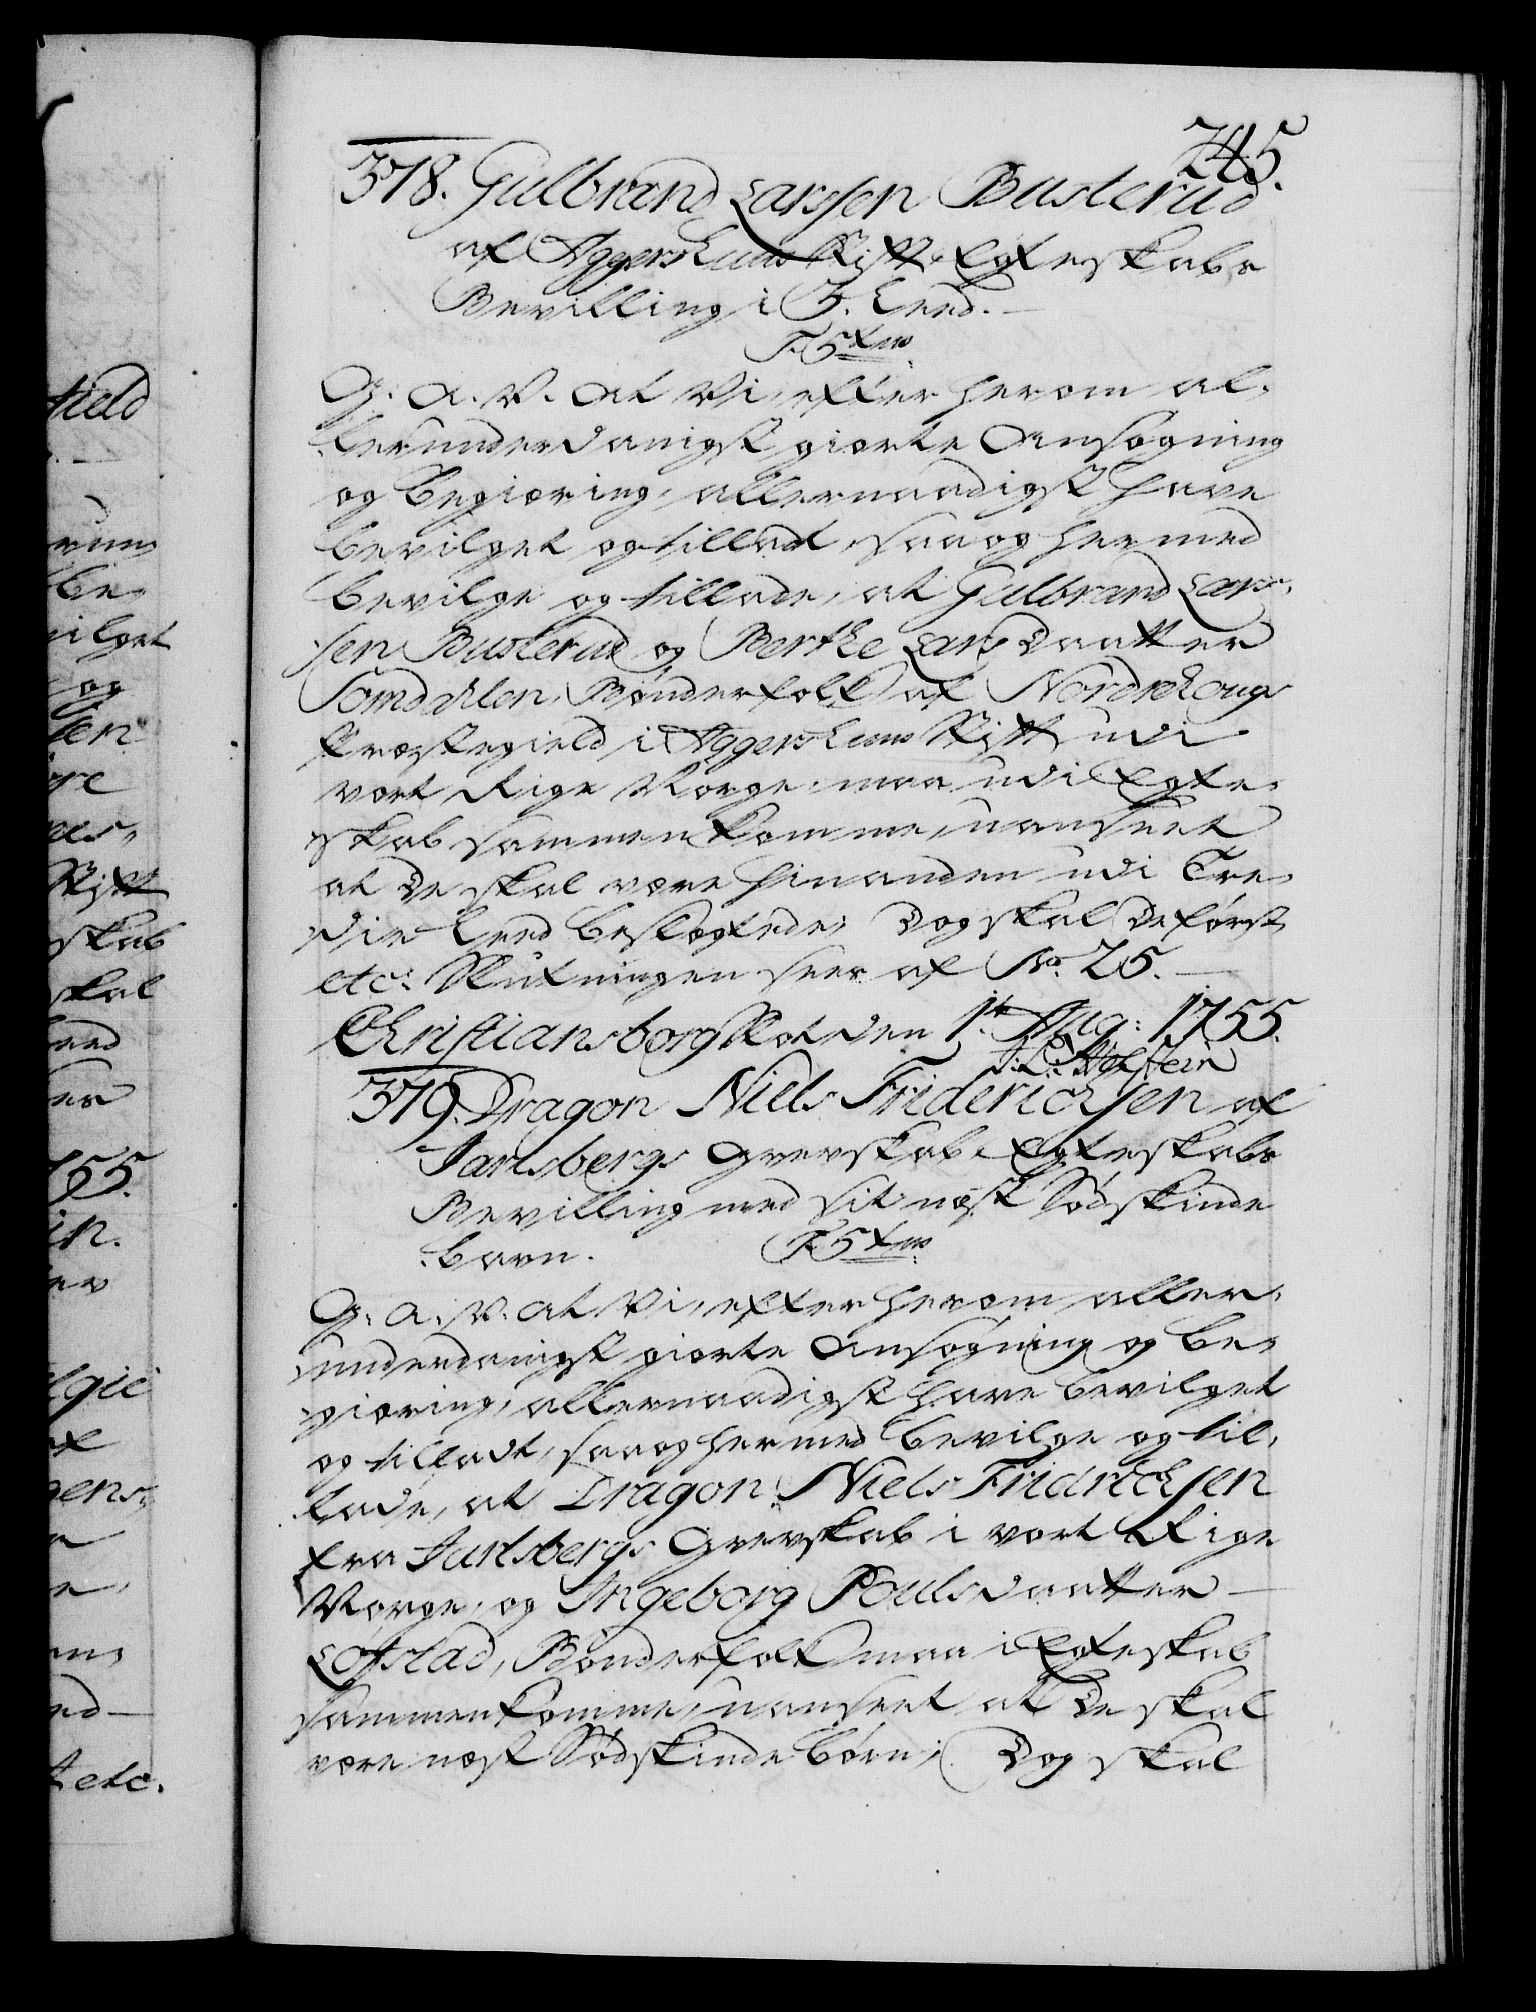 245.
378. Gulbrand Larssen Busterud
af Aggershuus Stift Egteskabs
Bevilling i 3. Leed.
F. 5te
G: A: V. At Vi, efter herom al-
lerunderdanigst giorte Ansøgning
og begiæring, allernaadigst have
bevilget og tilladt, saa og hermed
bevilge og tillade, at Gulbrand Lars-
sen Busterud og Berthe Lars Daatter
Somdahlen, Bønderfolk af Nordrehougs
Præstegield i Aggershuus Stift udi
vort Rige Norge, maa udi Egte-
skab sammenkomme, uanseet
at De skal være hinanden udi Tre-
die Leed beslægtede; Dog skal De først
etc: Slutningen sees af No. 25.
Christiansborg Slot den 1te Aug: 1755.
J. L. Holstein
379. Dragon Niels Friderichsen af
Jarlsbergs Grevskab Egteskabs
Bevilling med sit næst Sødskinde
barn. F. 5te
G: A: V. At Vi, efter herom aller-
underdanigst giorte Ansøgning og be-
giæring, allernaadigst have bevilget
og tilladt, saa og hermed bevilge og til-
lade, at Dragon Niels Fridrichsen
fra Jarlsbergs Grevskab i vort Rige
Norge, og Ingeborg Poulsdaatter
Lofstad, Bønderfolk maa i Egteskab
sammenkomme, uanseet at De skal
være næst Sødskindebørn; Dog skal